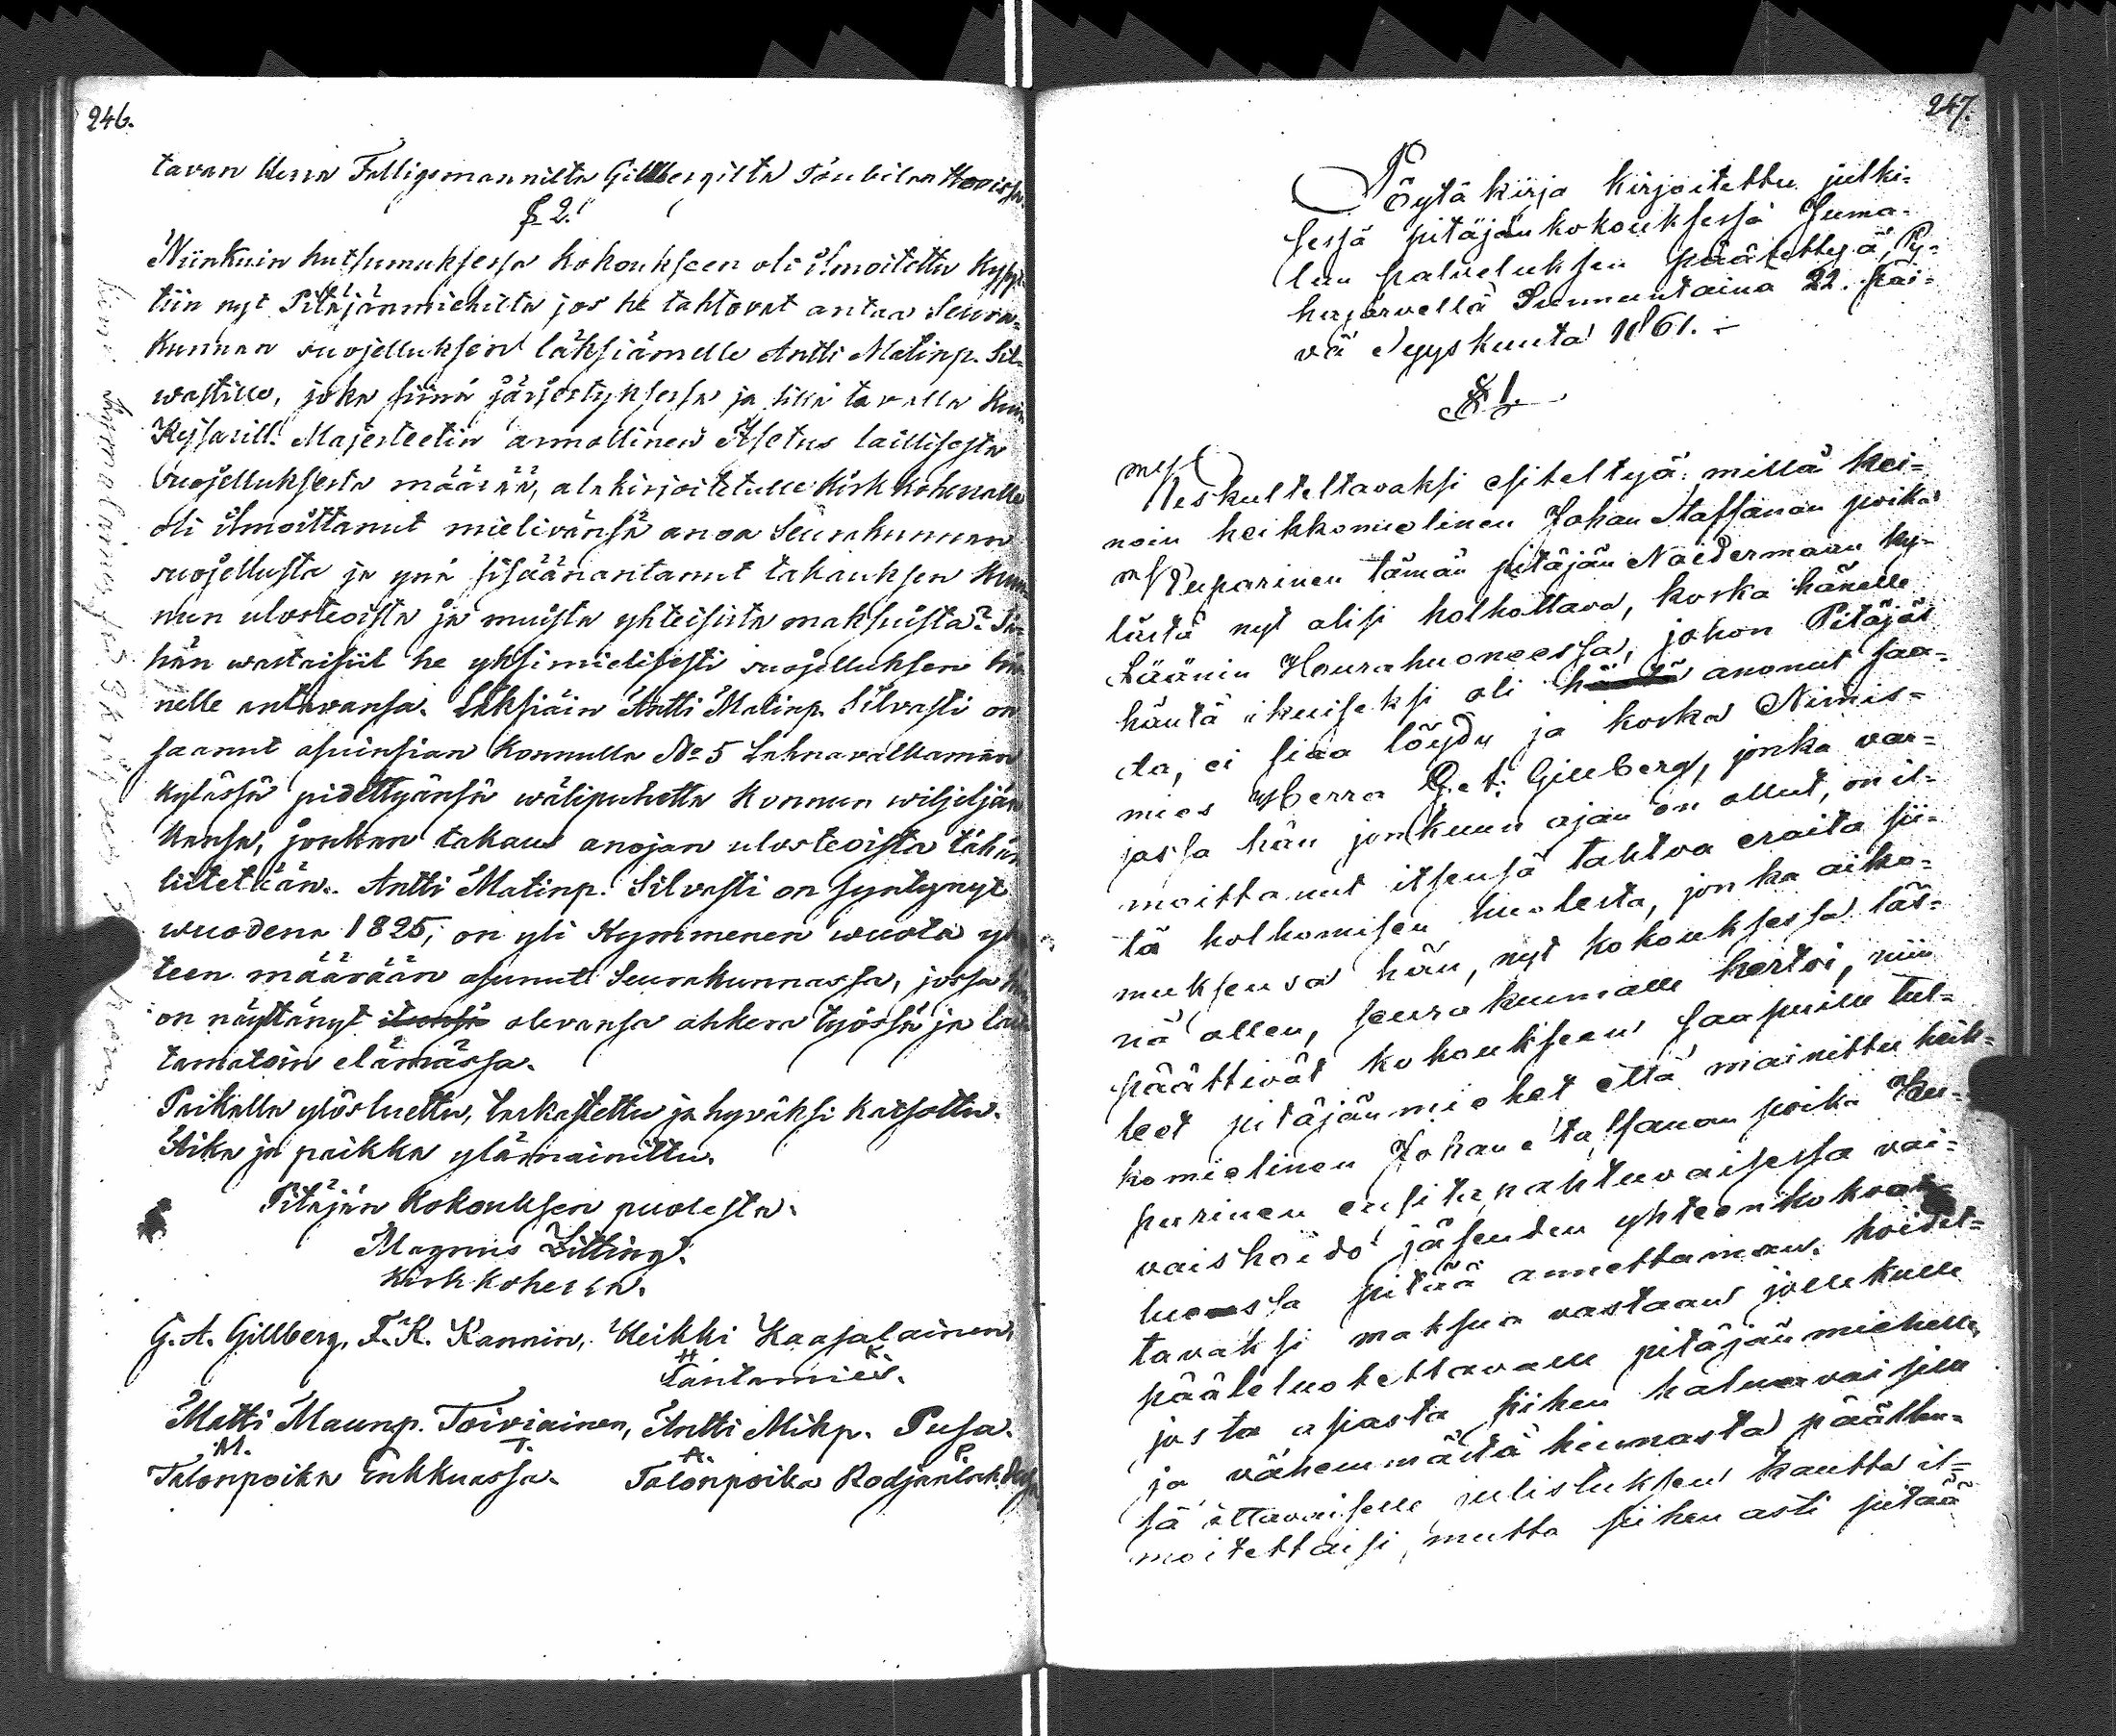 246.
tavan Herra Falligsmannilta Gillbergilta Toubilan Hovissa.
§ 2.
Niinkuin kutsumuksessa kokoukseen oli ilmoitettu kysyt-
tiin nyt Pitäjänmiehiltä jos he tahtovat antaa Seura-
kunnan suojelluksen läksiämelle Antti Matinp. Sil-
wastille, joka siinä järjestyksessä ja sillä tavalla kuin
Keisarill. Majesteetin armollinen Asetus laillisesta
Suojelluksesta määrää, alakirjoitetulle Kirkkoherralle
oli ilmoittanut mielivänsä anoa Seurakunnan
suojellusta ja ynnä sisäänantanut takauksen kun-
nun ulosteoista ja muista yhteisistä maksuista? Tä-
hän wastaisiit he yksimielisesti suojelluksen hä-
nelle antavansa. Läksiäin Antti Matinp. Silvasti on
saanut asuinsian Konnulla No 5 Lahnavalkaman
kylässä pidettyänsä wälipuhetta Konnun wiljeljän
kansa, jonkan takaus anojan ulosteoista tähän
liitetään. Antti Matinp. Silvasti on syntynyt
wuodena 1825, on yli Kymmenen wuotta yh-
teen määrään asunut Seurakunnassa, jossa hän
on näyttänyt itsensä olevansa ahkera työssä ja lait-
tamatoin elämässä.
Paikalla ylösluettu, tarkastettu ja hyväksi katsottu.
Aika ja paikka ylämainittu.
Pitäjän Kokouksen puolesta.
Magnus Zitting.
Kirkkoherra.
G. A. Gillberg, F. K. Kannin, Heikki Kaasalainen,
H. K.
Lautamies.
Matti Maunp. Toiviainen, Antti Mikp. Pusa.
M. T. A. P.
Talonpoika Enkkuassa. Talonpoika Rodjanlah.
247.
Pöytäkirja kirjoitettu julki-
sessa pitäjänkokouksessa Juma-
lan palveluksen päätettyä, Py-
häjärvellä Sunnuntaina 22. päi-
vä Syyskuuta 1861. –
§ 1.
Keskusteltavaksi esiteltyä: millä kei-
noin heikkomielinen Johan Staffanan poika
Kuparinen tämän pitäjän Noidermaan ky-
lästä nyt olisi holhottava, koska hänelle
Läänin Hourahuoneessa, johon Pitäjäs
häntä ikuiseksi oli häntä anonut saa-
da, ei siaa löydy ja koska Nimis-
mies Herra G. A. Gillberg, jonka var-
jossa hän jonkuun ajan on ollut, on il-
moittanut itsensä tahtoa eroita sii-
tä holhomisen huolesta, jonka aiko-
muksensa hän, nyt kokouksessa läs-
nä ollen, seurakunnalle kertoi, niin
päättivät kokoukseen saapuille tul-
leet pitäjänmiehet että mainittu heik-
komielinen Johan Staffanan poika Ku-
parinen ensitapahtuvaisessa vai-
vaishoido jäsenden yhteenkokoon-
luossa pitää annettaman hoidet-
tavaksi maksua vastaan jollekulle
pääleluotettavalle pitäjänmiehelle,
josta asiasta siihen haluavaisille
ja vähemmästä hinnasta päätten-
sä ottavaiselle julistuksen kautta il-
moitettaisi, mutta siihen asti pitää